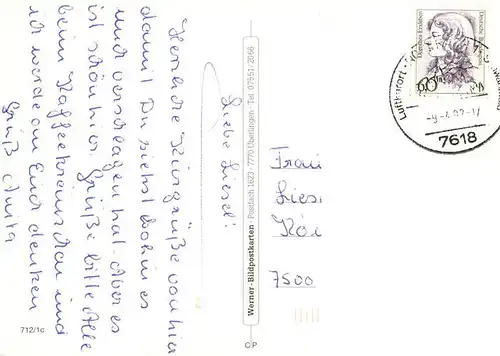 Liebe Liesel!
Herzliche Kurgrüße von hier
damit Du siehst wohin es
mich verschlagen hat. Aber es
ist schön hier. Grüße bitte Alle
beim Kaffeekränzchen und
ich werde an Euch denken
Gruß Anita
712/1c
Werner-Bildpostkarten · Postfach 1623 · 7770 Überlingen · Tel. 07551/2066
CP
Deutsche Bundespost
60
Luftkurort
7618
Frau
Liesel
Kör
7500